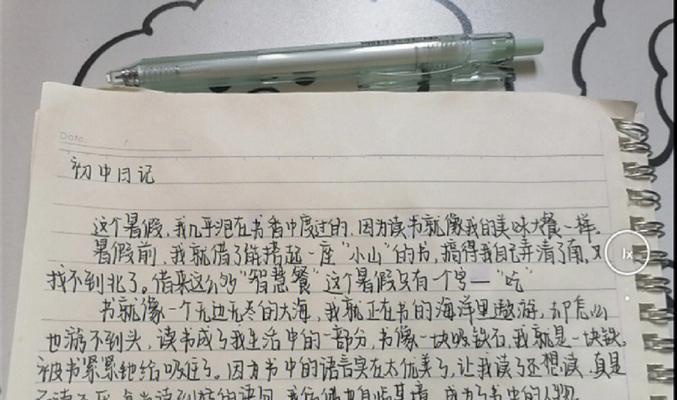 Date.
初中日记
这个暑假，我几乎泡在书香中度过的，因为读书就像我的美味大餐一样。
暑假前，我就借了能搭起一座“小山”的书，搞得我自己弄清了南，又
找不到北了。借来这么多“智慧餐”这个暑假只有一个字——“吃”
书就像一个无边无尽的大海，我就正在书的海洋里遨游，却怎么
也游不到头，读书成了我生活中的一部分，书像一块吸铁石，我就是一块铁，
被书紧紧地给吸住了。因为书中的语言实在太优美了，让我读了还想读，真是
1x